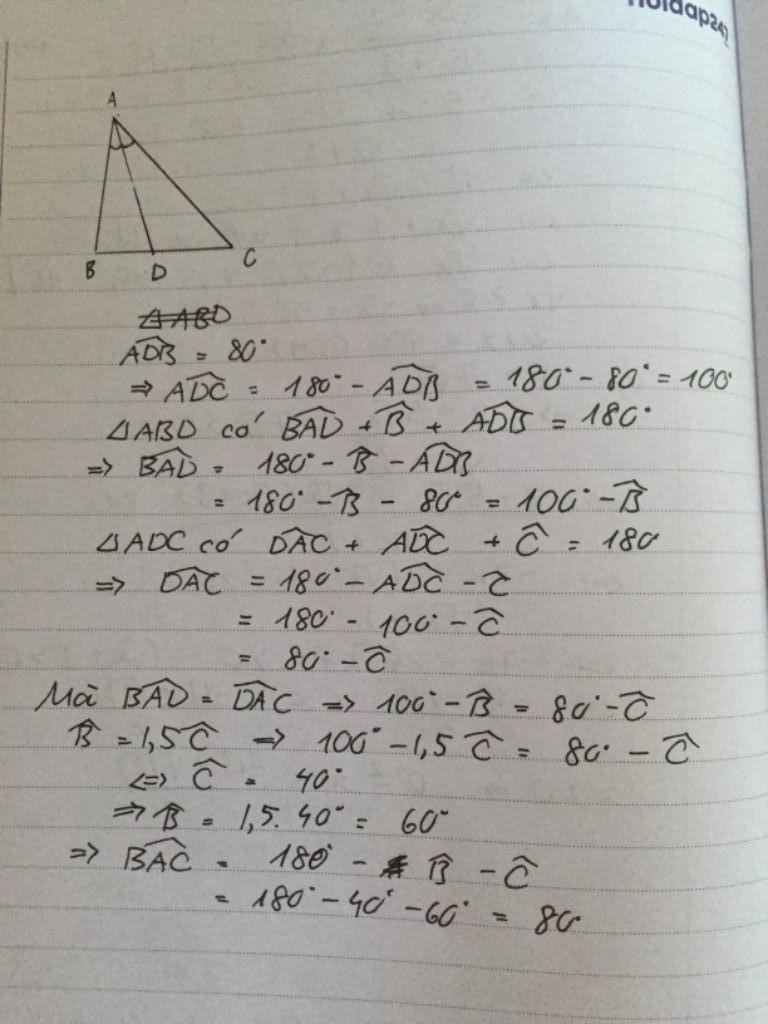 Hoidap247
A
B
D
C
△ABD
ADB̂ = 80°
⇒ ADĈ = 180° - ADB̂ = 180° - 80° = 100°
△ABD có BAD̂ + B̂ + ADB̂ = 180°
⇒ BAD̂ = 180° - B̂ - ADB̂
= 180° - B̂ - 80° = 100° - B̂
△ADC có DAĈ + ADĈ + Ĉ = 180
⇒ DAĈ = 180° - ADĈ - Ĉ
= 180° - 100° - Ĉ
= 80° - Ĉ
Mà BAD̂ = DAĈ ⇒ 100° - B̂ = 80° - Ĉ
B̂ = 1,5Ĉ ⇒ 100° - 1,5Ĉ = 80° - Ĉ
⇔ Ĉ = 40°
⇒ B̂ = 1,5. 40° = 60°
⇒ BAĈ = 180° - B̂ - Ĉ
= 180° - 40° - 60° = 80°